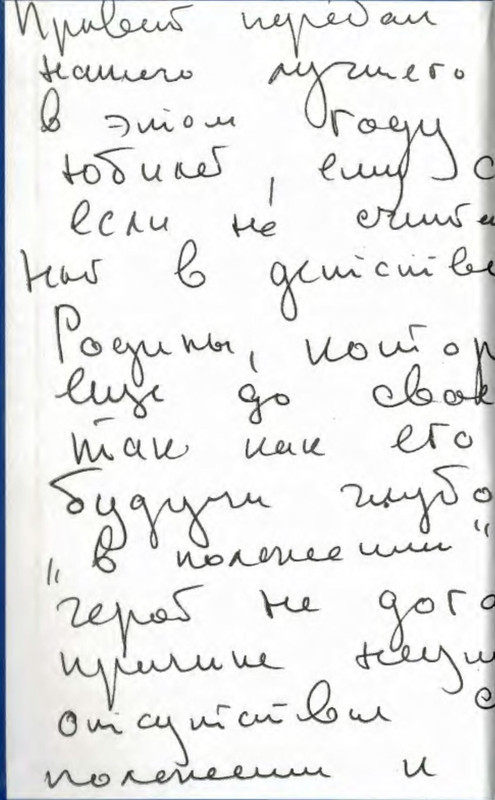 Привет передал
нашего лучшего
в этом году
юбилей, ему с
если не счита
ной в детстве
Родины, котор
еще до свое
так как его
будучи глубо
"в положении"
герой не дога
причине неу
отсутствии с
положении и